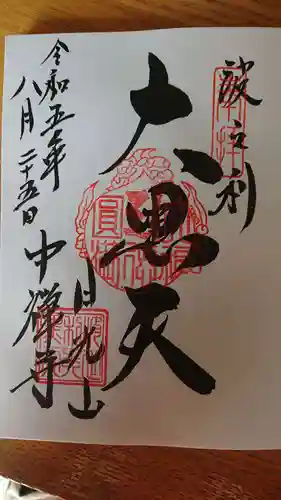 波之利
大黒天
日光山
中禅寺
令和五年
八月二十五日
奉拝